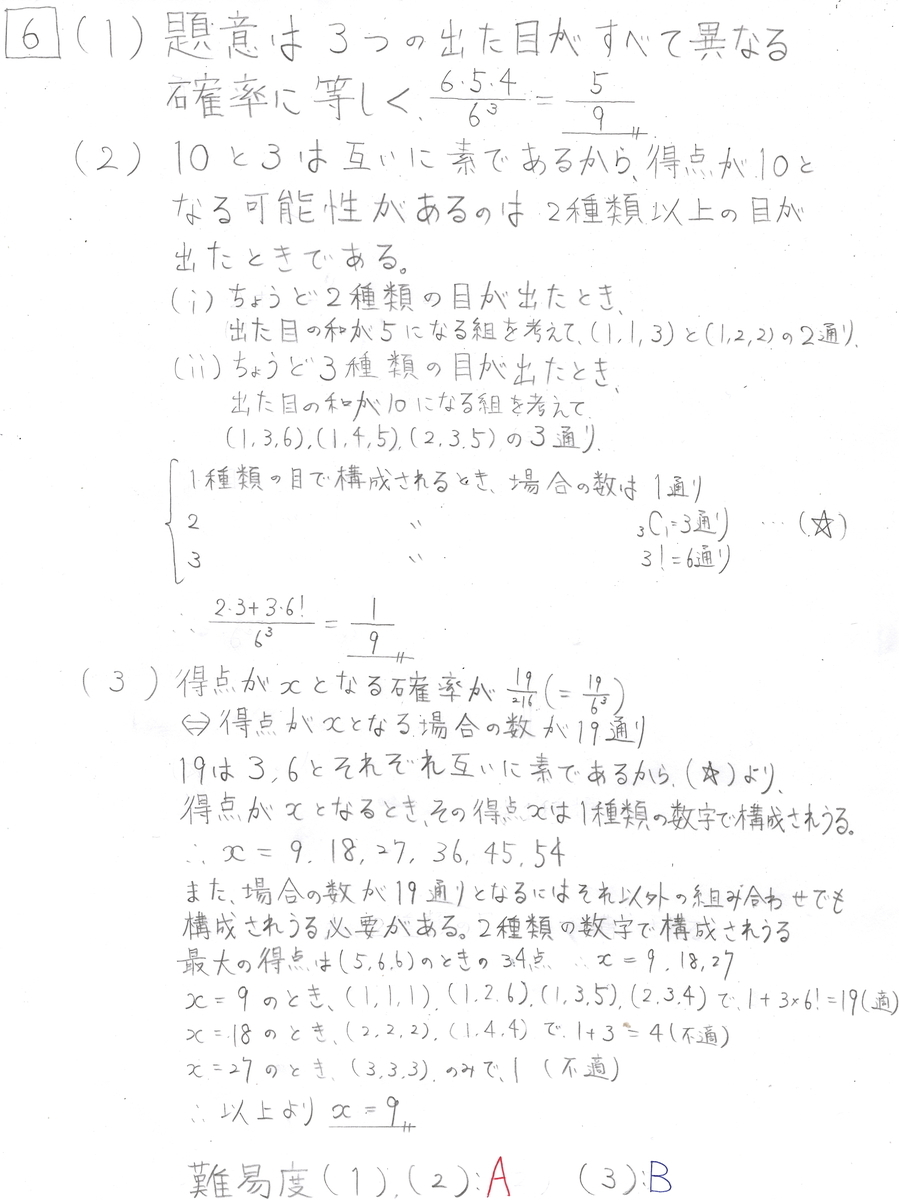 6 (1) 題意は3つの出た目がすべて異なる
確率に等しく、6・5・4/6³ = 5/9
(2) 10と3は互いに素であるから、得点が10と
なる可能性があるのは2種類以上の目が
出たときである。
(i) ちょうど2種類の目が出たとき、
出た目の和が5になる組を考えて、(1,1,3)と(1,2,2)の2通り.
(ii) ちょうど3種類の目が出たとき、
出た目の和が10になる組を考えて
(1,3,6),(1,4,5),(2,3,5)の3通り.
1種類の目で構成されるとき、場合の数は 1通り
2 〃 ₃C₁=3通り …(☆)
3 〃 3!=6通り
∴ 2・3+3・6!/6³ = 1/9
(3) 得点がxとなる確率が 19/216 (= 19/6³)
⇔ 得点がxとなる場合の数が19通り
19は3,6とそれぞれ互いに素であるから、(☆)より、
得点がxとなるとき、その得点xは1種類の数字で構成されうる。
∴ x = 9, 18, 27, 36, 45, 54
また、場合の数が19通りとなるにはそれ以外の組み合わせでも
構成されうる必要がある。2種類の数字で構成されうる
最大の得点は(5,6,6)のときの34点 ∴ x = 9, 18, 27
x = 9 のとき、(1,1,1),(1,2,6),(1,3,5),(2,3,4)で、1+3×6!=19(適)
x = 18 のとき、(2,2,2),(1,4,4)で、1+3 = 4(不適)
x = 27 のとき、(3,3,3),のみで、1 (不適)
∴ 以上より x = 9
難易度(1),(2):A (3):B